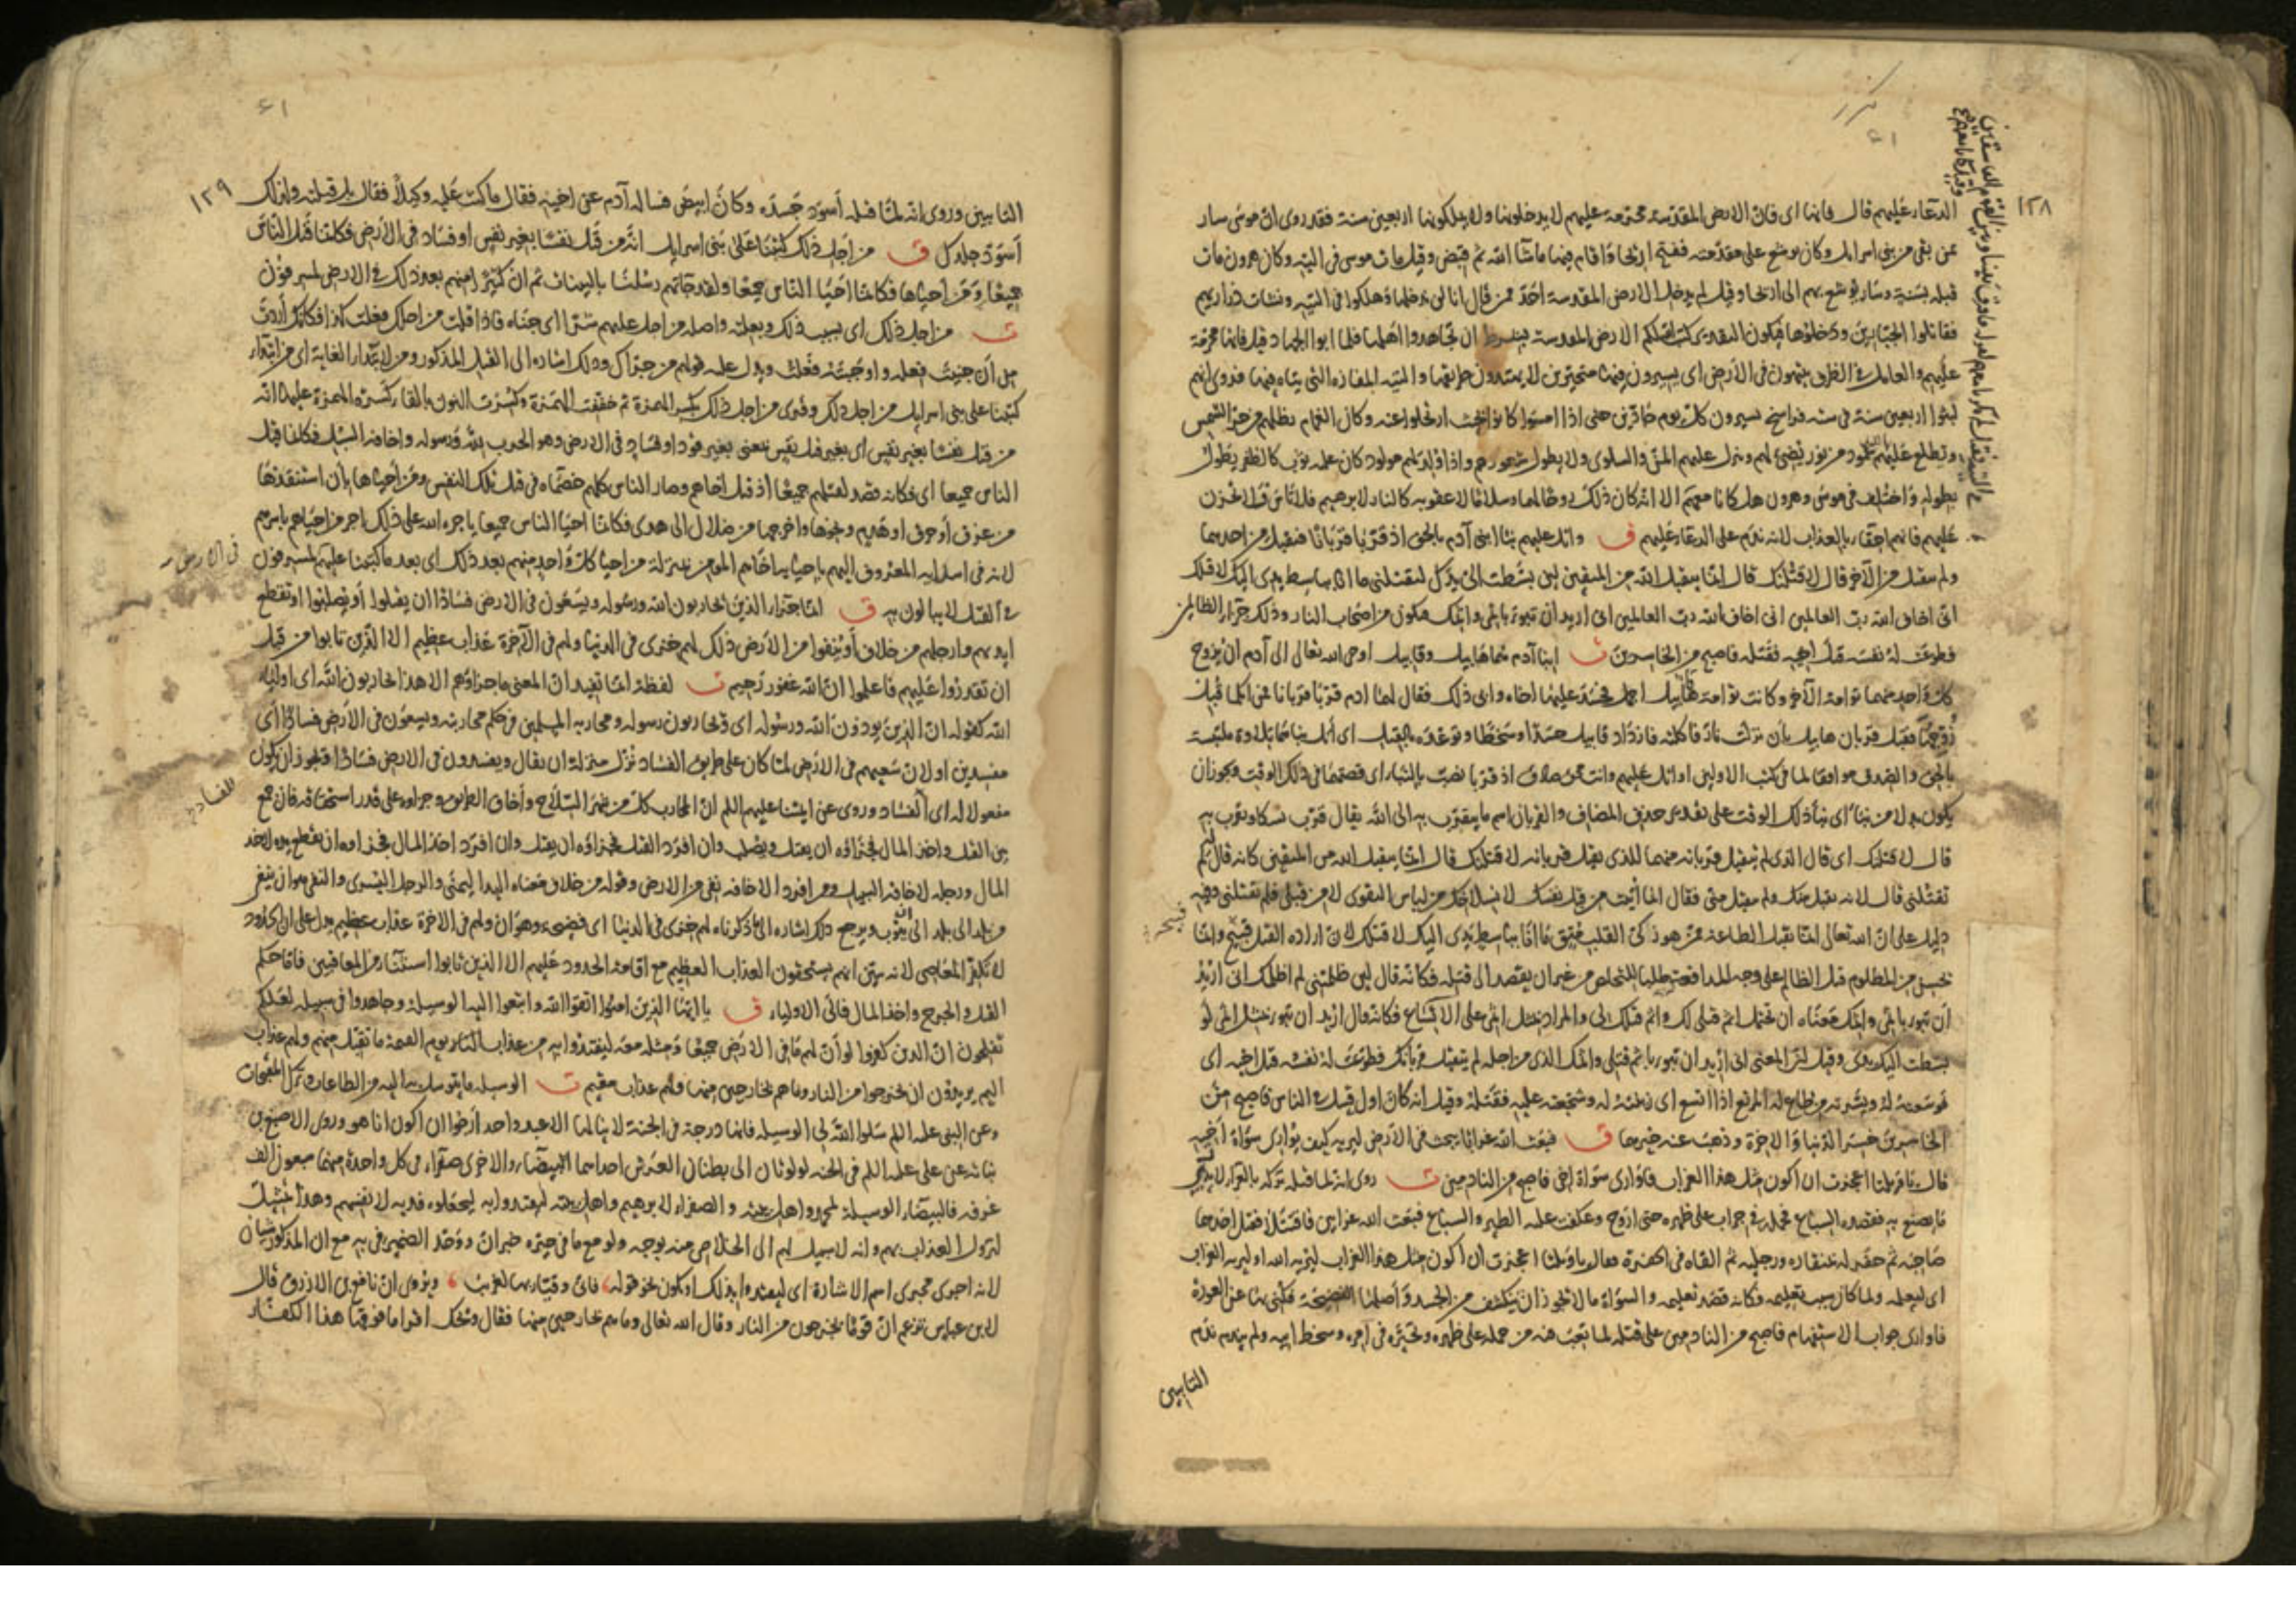 ١٢٨
الدعاء عليهم قال فانها اى فان الارض المقدسة محرمة عليهم لا يدخلونها ولا يملكونها اربعين سنة فقد روى ان موسى سار
بمن بقى من بنى اسرائيل وكان يوشع على مقدمته ففتح اريحا واقام فيها ما شاء الله ثم قبض وقيل مات موسى فى التيه وكان هرون مات
قبله بسنة وسار يوشع بهم الى اريحا وقيل لم يدخل الارض المقدسة احد ممن قال انا لن ندخلها وهلكوا فى التيه ونشأت ذراريهم
فقاتلوا الجبارين ودخلوها فيكون التقدير كتب الله لكم الارض المقدسة بشرط ان تجاهدوا اهلها فلما ابوا الجهاد قيل فانها محرمة
عليهم والعامل فى الظرف يتيهون فى الارض اى يسيرون فيها متحيرين لا يهتدون طريقها والتيه المفازة التى يتاه فيها فروى انهم
لبثوا اربعين سنة فى ستة فراسخ يسيرون كل يوم جادين حتى اذا امسوا كانوا بحيث ارتحلوا عنه وكان الغمام يظلهم من حر الشمس
ويطلع عليهم عمود من نور يضىء لهم وينزل عليهم المن والسلوى ولا يطول شعورهم واذا ولد لهم مولود كان عليه ثوب كالظفر يطول
بطوله واختلف فى موسى وهرون هل كانا معهم الا انه كان ذلك روحا لهما وسلاما لا عقوبة كالنار لابرهيم فلا تأس فلا تحزن
عليهم فانهم احقاء بالعذاب لانه ندم على الدعاء عليهم ق واتل عليهم نبأ ابنى آدم بالحق اذ قربا قربانا فتقبل من احدهما
ولم يتقبل من الآخر قال لاقتلنك قال انما يتقبل الله من المتقين لئن بسطت الى يدك لتقتلنى ما انا بباسط يدى اليك لاقتلك
انى اخاف الله رب العالمين انى اخاف الله رب العالمين انى اريد ان تبوء باثمى واثمك فتكون من اصحاب النار وذلك جزاء الظالمين
فطوعت له نفسه قتل اخيه فقتله فاصبح من الخاسرين ت ابنا آدم هما هابيل وقابيل اوحى الله تعالى الى آدم ان يزوج
كل واحد منهما توامة الآخر وكانت توامة قابيل اجمل فحسد عليها اخاه وابى ذلك فقال لهما ادم قربا قربانا فمن ايكما قبل
زوجها فقبل قربان هابيل بأن نزلت نار فاكلته فازداد قابيل حسدا وسخطا وتوعده بالقتل اى اتل نبأهما تلاوة ملتبسة
بالحق والصدق موافقا لما فى كتب الاولين او اتل عليهم وانت محق صادق اذ قربا نصب بالنبأ اى قصتهما فى ذلك الوقت ويجوز ان
يكون بدلا من نبأ اى نبأ ذلك الوقت على تقدير حذف المضاف والقربان اسم ما يتقرب به الى الله يقال قرب نسكا وتقرب به
قال لاقتلنك اى قال الذى لم يتقبل قربانه منهما للذى تقبل قربانه لاقتلنك قال انما يتقبل الله من المتقين كانه قال لم
تقتلنى قال لانه تقبل منك ولم يتقبل منى فقال انما أتيت من قبل نفسك لانسلاخك من لباس التقوى لا من قبلى فلم تقتلنى وفيه
دليل على ان الله تعالى انما يقبل الطاعة ممن هو ذكى القلب متق ما انا بباسط يدى اليك لاقتلك لان ارادة القتل قبيح وانما
يحسن من المظلوم قتل الظالم على وجه المدافعة طلبا للتخلص من غير ان يقصد الى قتله فكانه قال لئن ظلمتنى لم اظلمك انى اريد
أن تبوء باثمى واثمك معناه ان تحتمل اثم قتلى لك واثم قتلك لى والمراد بمثل اثمى على الاتساع فكانه قال اريد ان تبوء بمثل اثمى لو
بسطت اليك يدى وقيل ان المعنى انى اريد ان تبوء باثم قتلى واثمك الذى من اجله لم يتقبل قربانك فطوعت له نفسه قتل اخيه اى
فوسعته له ويسرته من طاع له المرتع اذا اتسع اى زينته له وشجعته عليه فقتله وقيل انه كان اول قتيل فى الناس فاصبح من
الخاسرين خسر الدنيا والاخرة وذهب عنه خيرهما ق فبعث الله غرابا يبحث فى الارض ليريه كيف يوارى سوأة اخيه
قال يا ويلتا اعجزت ان اكون مثل هذا الغراب فاوارى سوأة اخى فاصبح من النادمين ت روى انه لما قتله تركه بالعراء لا يدرى
ما يصنع به فقصده السباع فحمله فى جراب على ظهره حتى اروح وعكفت عليه الطير والسباع فبعث الله غرابين فاقتتلا فقتل احدهما
صاحبه ثم حفر له بمنقاره ورجليه ثم القاه فى الحفرة فقال يا ويلتا اعجزت ان اكون مثل هذا الغراب ليريه الله او ليريه الغراب
اى ليعلمه ولما كان سبب تعليمه فكانه قصد تعليمه والسوأة ما لا يجوز ان ينكشف من الجسد وأصلها الفضيحة فكنى بها عن العورة
فاوارى جواب الاستفهام فاصبح من النادمين على قتله لما تعب فيه من حمله على ظهره وتحيره فى امره وسخط ابيه ولم يندم ندم
التائبين
١٢٩
التائبين وروى انه لما قتله أسود جسده وكان ابيض فساله آدم عن اخيه فقال ما كنت عليه وكيلا فقال بل قتلته ولذلك
أسود جلدك ق من اجل ذلك كتبنا على بنى اسرائيل انه من قتل نفسا بغير نفس او فساد فى الارض فكانما قتل الناس
جميعا ومن احياها فكانما احيا الناس جميعا ولقد جاءتهم رسلنا بالبينات ثم ان كثيرا منهم بعد ذلك فى الارض لمسرفون
ت من اجل ذلك اى بسبب ذلك وبعلته واصله من اجل عليهم شرا اى جناه فاذا قلت من اجلك فعلت كذا فكانك أردت
من أن جنيت فعله واوجبته فعلت ويدل عليه قولهم من جراك وذلك اشارة الى القتل المذكور ومن لابتداء الغاية اى من ابتداء
كتبنا على بنى اسرائيل من اجل ذلك وقرئ من اجل ذلك بكسر الهمزة ثم خففت الهمزة وكسرت النون بالقاء كسرة الهمزة عليها انه
من قتل نفسا بغير نفس اى بغير قتل نفس يعنى بغير قود او فساد فى الارض وهو الحرب لله ورسوله واخافة السبيل فكانما قتل
الناس جميعا اى فكانه قصد لقتلهم جميعا اذ قتل اخاهم وصار الناس كلهم خصماه فى قتل تلك النفس ومن احياها بأن استنقذها
من غرق أو حرق او هدم ونحوها واخرجها من ضلال الى هدى فكانما احيا الناس جميعا ياجره الله على ذلك اجر من احياهم باسرهم
لانه فى اسدائه المعروف اليهم باحيائه اخاهم المؤمن بمنزلة من احيا كل واحد منهم بعد ذلك اى بعد ما كتبنا عليهم لمسرفون
فى الارض
فى القتل لا يبالون به ق انما جزاء الذين يحاربون الله ورسوله ويسعون فى الارض فسادا ان يقتلوا أو يصلبوا او تقطع
ايديهم وارجلهم من خلاف أو ينفوا من الارض ذلك لهم خزى فى الدنيا ولهم فى الآخرة عذاب عظيم الا الذين تابوا من قبل
ان تقدروا عليهم فاعلموا ان الله غفور رحيم ت لفظة انما تفيد ان المعنى ما جزاؤهم الا هذا يحاربون الله اى اولياء
الله كقوله ان الذين يؤذون الله ورسوله اى ويحاربون رسوله ومحاربة المسلمين فى حكم محاربته ويسعون فى الارض فسادا اى
مفسدين او لان سعيهم فى الارض لما كان على طريق الفساد نزل منزلة ان يقال ويفسدون فى الارض فسادا ويجوز ان يكون
مفعولا له اى للفساد وروى عن ائمتنا عليهم السلم ان المحارب كل من شهر السلاح وأخاف الطريق وجزاؤه على قدر استحقاقه فان جمع
بين القتل واخذ المال فجزاؤه ان يقتل ويصلب وان افرد القتل فجزاؤه ان يقتل وان افرد اخذ المال فجزاؤه ان تقطع يده لاخذ
المال ورجله لاخافة السبيل ومن افرد الاخافة نفى من الارض وقوله من خلاف معناه اليد اليمنى والرجل اليسرى والنفى هو ان ينفى
من بلد الى بلد الى ان يتوب ويرجع ذلك اشارة الى ما ذكرناه لهم خزى فى الدنيا اى فضيحة وهوان ولهم فى الاخرة عذاب عظيم يدل على ان الحدود
لا تكفر المعاصى لانه بين انهم يستحقون العذاب العظيم مع اقامة الحدود عليهم الا الذين تابوا استثناء من المعاقبين فاما حكم
القتل والجرح واخذ المال فالى الاولياء ق يا ايها الذين امنوا اتقوا الله وابتغوا اليه الوسيلة وجاهدوا فى سبيله لعلكم
تفلحون ان الذين كفروا لو أن لهم ما فى الارض جميعا ومثله معه ليفتدوا به من عذاب النار يوم القيمة ما تقبل منهم ولهم عذاب
اليم يريدون ان يخرجوا من النار وما هم بخارجين منها ولهم عذاب مقيم ت الوسيلة ما يتوسل به اليه من الطاعات وترك المقبحات
وعن النبى عليه السلم سلوا الله لى الوسيلة فانها درجة فى الجنة لا ينالها الا عبد واحد أرجوا ان اكون انا هو وروى الاصبغ بن
نباتة عن على عليه السلم فى الجنة لؤلؤتان الى بطنان العرش احداهما بيضاء والاخرى صفراء فى كل واحدة منهما سبعون الف
غرفة فالبيضاء الوسيلة لمحمد واهل بيته والصفراء لابرهيم واهل بيته ليفتدوا به ليجعلوه فدية لانفسهم وهذا تمثيل
للزوم العذاب بهم وانه لا سبيل لهم الى الخلاص منه بوجه ولو مع ما فى حيزه خبر ان ووحد الضمير فى به مع ان المذكور شيئان
لانه اجرى مجرى اسم الاشارة اى ليفتدوا بذلك او يكون نحو قوله فانى وقيار بها لغريب ويروى ان نافع بن الازرق قال
لابن عباس تزعم ان قوما يخرجون من النار وقال الله تعالى وما هم بخارجين منها فقال ويحك اقرا ما فوقها هذا للكفار